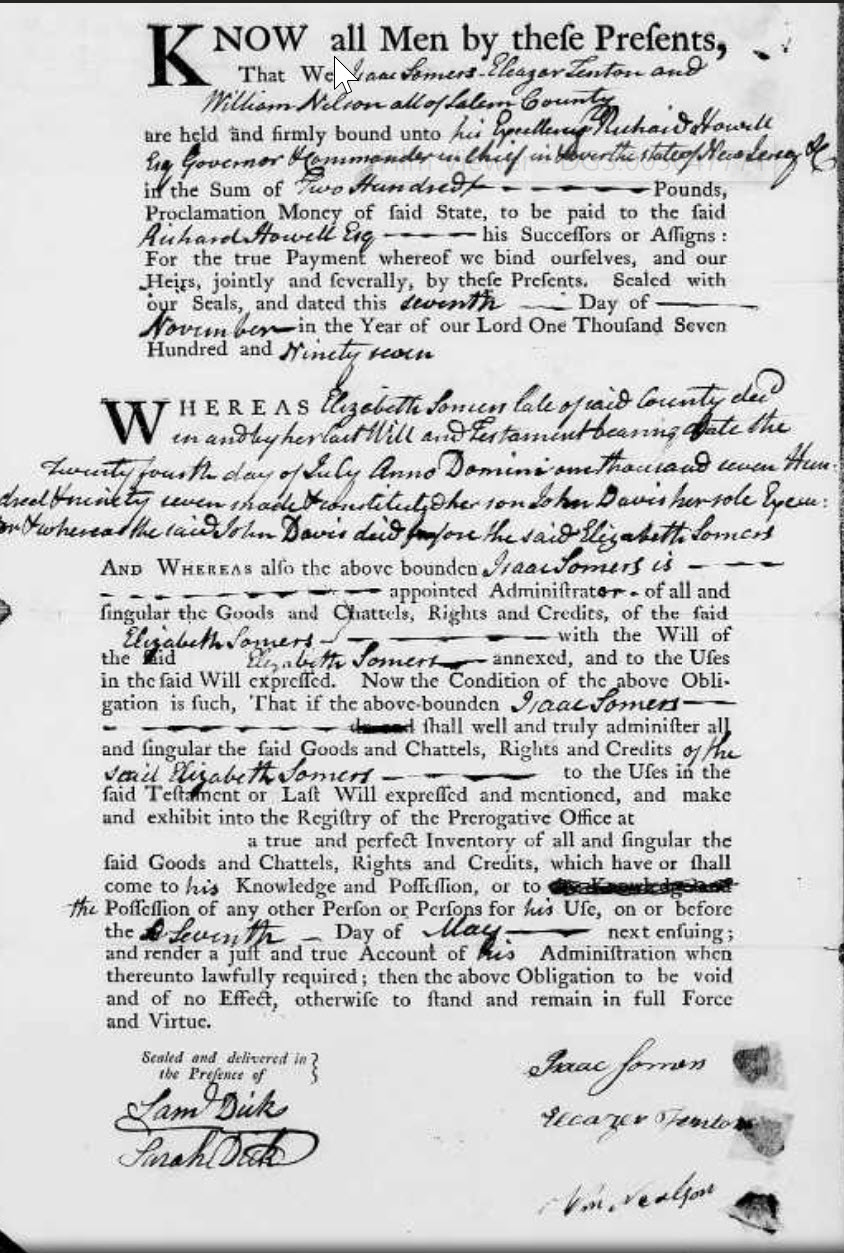 KNOW all Men by theſe Preſents,
That We Isaac Somers Eleazar Fenton and
William Nelson all of Salem County
are held and firmly bound unto his Excellency Richard Howell
Esq Governor & Commander in Chief in & over the state of New Jersey &c
in the Sum of Two Hundred Pounds,
Proclamation Money of ſaid State, to be paid to the ſaid
Richard Howell Esq his Succeſſors or Aſſigns :
For the true Payment whereof we bind ourſelves, and our
Heirs, jointly and ſeverally, by theſe Preſents. Sealed with
our Seals, and dated this seventh Day of
November in the Year of our Lord One Thouſand Seven
Hundred and Ninety seven
WHEREAS Elizabeth Somers late of said County decd
in and by her last Will and Testament bearing Date the
twenty fourth day of July Anno Domini one thousand seven Hun-
dred & ninety seven made & constituted her son John Davis her sole Execu:
or & whereas the said John Davis died before the said Elizabeth Somers
AND WHEREAS alſo the above bounden Isaac Somers is
appointed Adminiſtrator of all and
ſingular the Goods and Chattels, Rights and Credits, of the ſaid
Elizabeth Somers with the Will of
the ſaid Elizabeth Somers annexed, and to the Uſes
in the ſaid Will expreſſed. Now the Condition of the above Obli-
gation is ſuch, That if the above-bounden Isaac Somers
ſhall well and truly adminiſter all
and ſingular the ſaid Goods and Chattels, Rights and Credits of the
said Elizabeth Somers to the Uſes in the
ſaid Teſtament or Laſt Will expreſſed and mentioned, and make
and exhibit into the Regiſtry of the Prerogative Office at
a true and perfect Inventory of all and ſingular the
ſaid Goods and Chattels, Rights and Credits, which have or ſhall
come to his Knowledge and Poſſeſſion, or to
the Poſſeſſion of any other Perſon or Perſons for his Uſe, on or before
the Seventh Day of May next enſuing ;
and render a juſt and true Account of his Adminiſtration when
thereunto lawfully required ; then the above Obligation to be void
and of no Effect, otherwiſe to ſtand and remain in full Force
and Virtue.
Sealed and delivered in
the Preſence of
Saml Dick
Sarah Dick
Isaac Somers
Eleazer Fenton
Wm Nealson